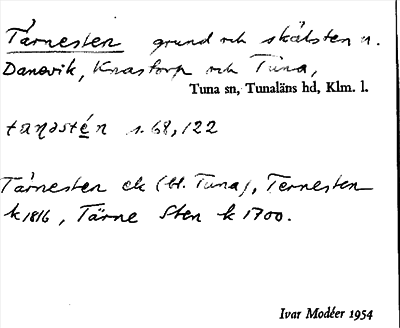 Tärnesten grund och skälsten n.
Danevik, Knastorp och Tuna,
Tuna sn, Tunaläns hd, Klm. l.
s. 68, 122
Tärnesten ek (bl. Tuna), Ternesten
k 1816, Tärne Sten k 1700.
Ivar Modéer 1954